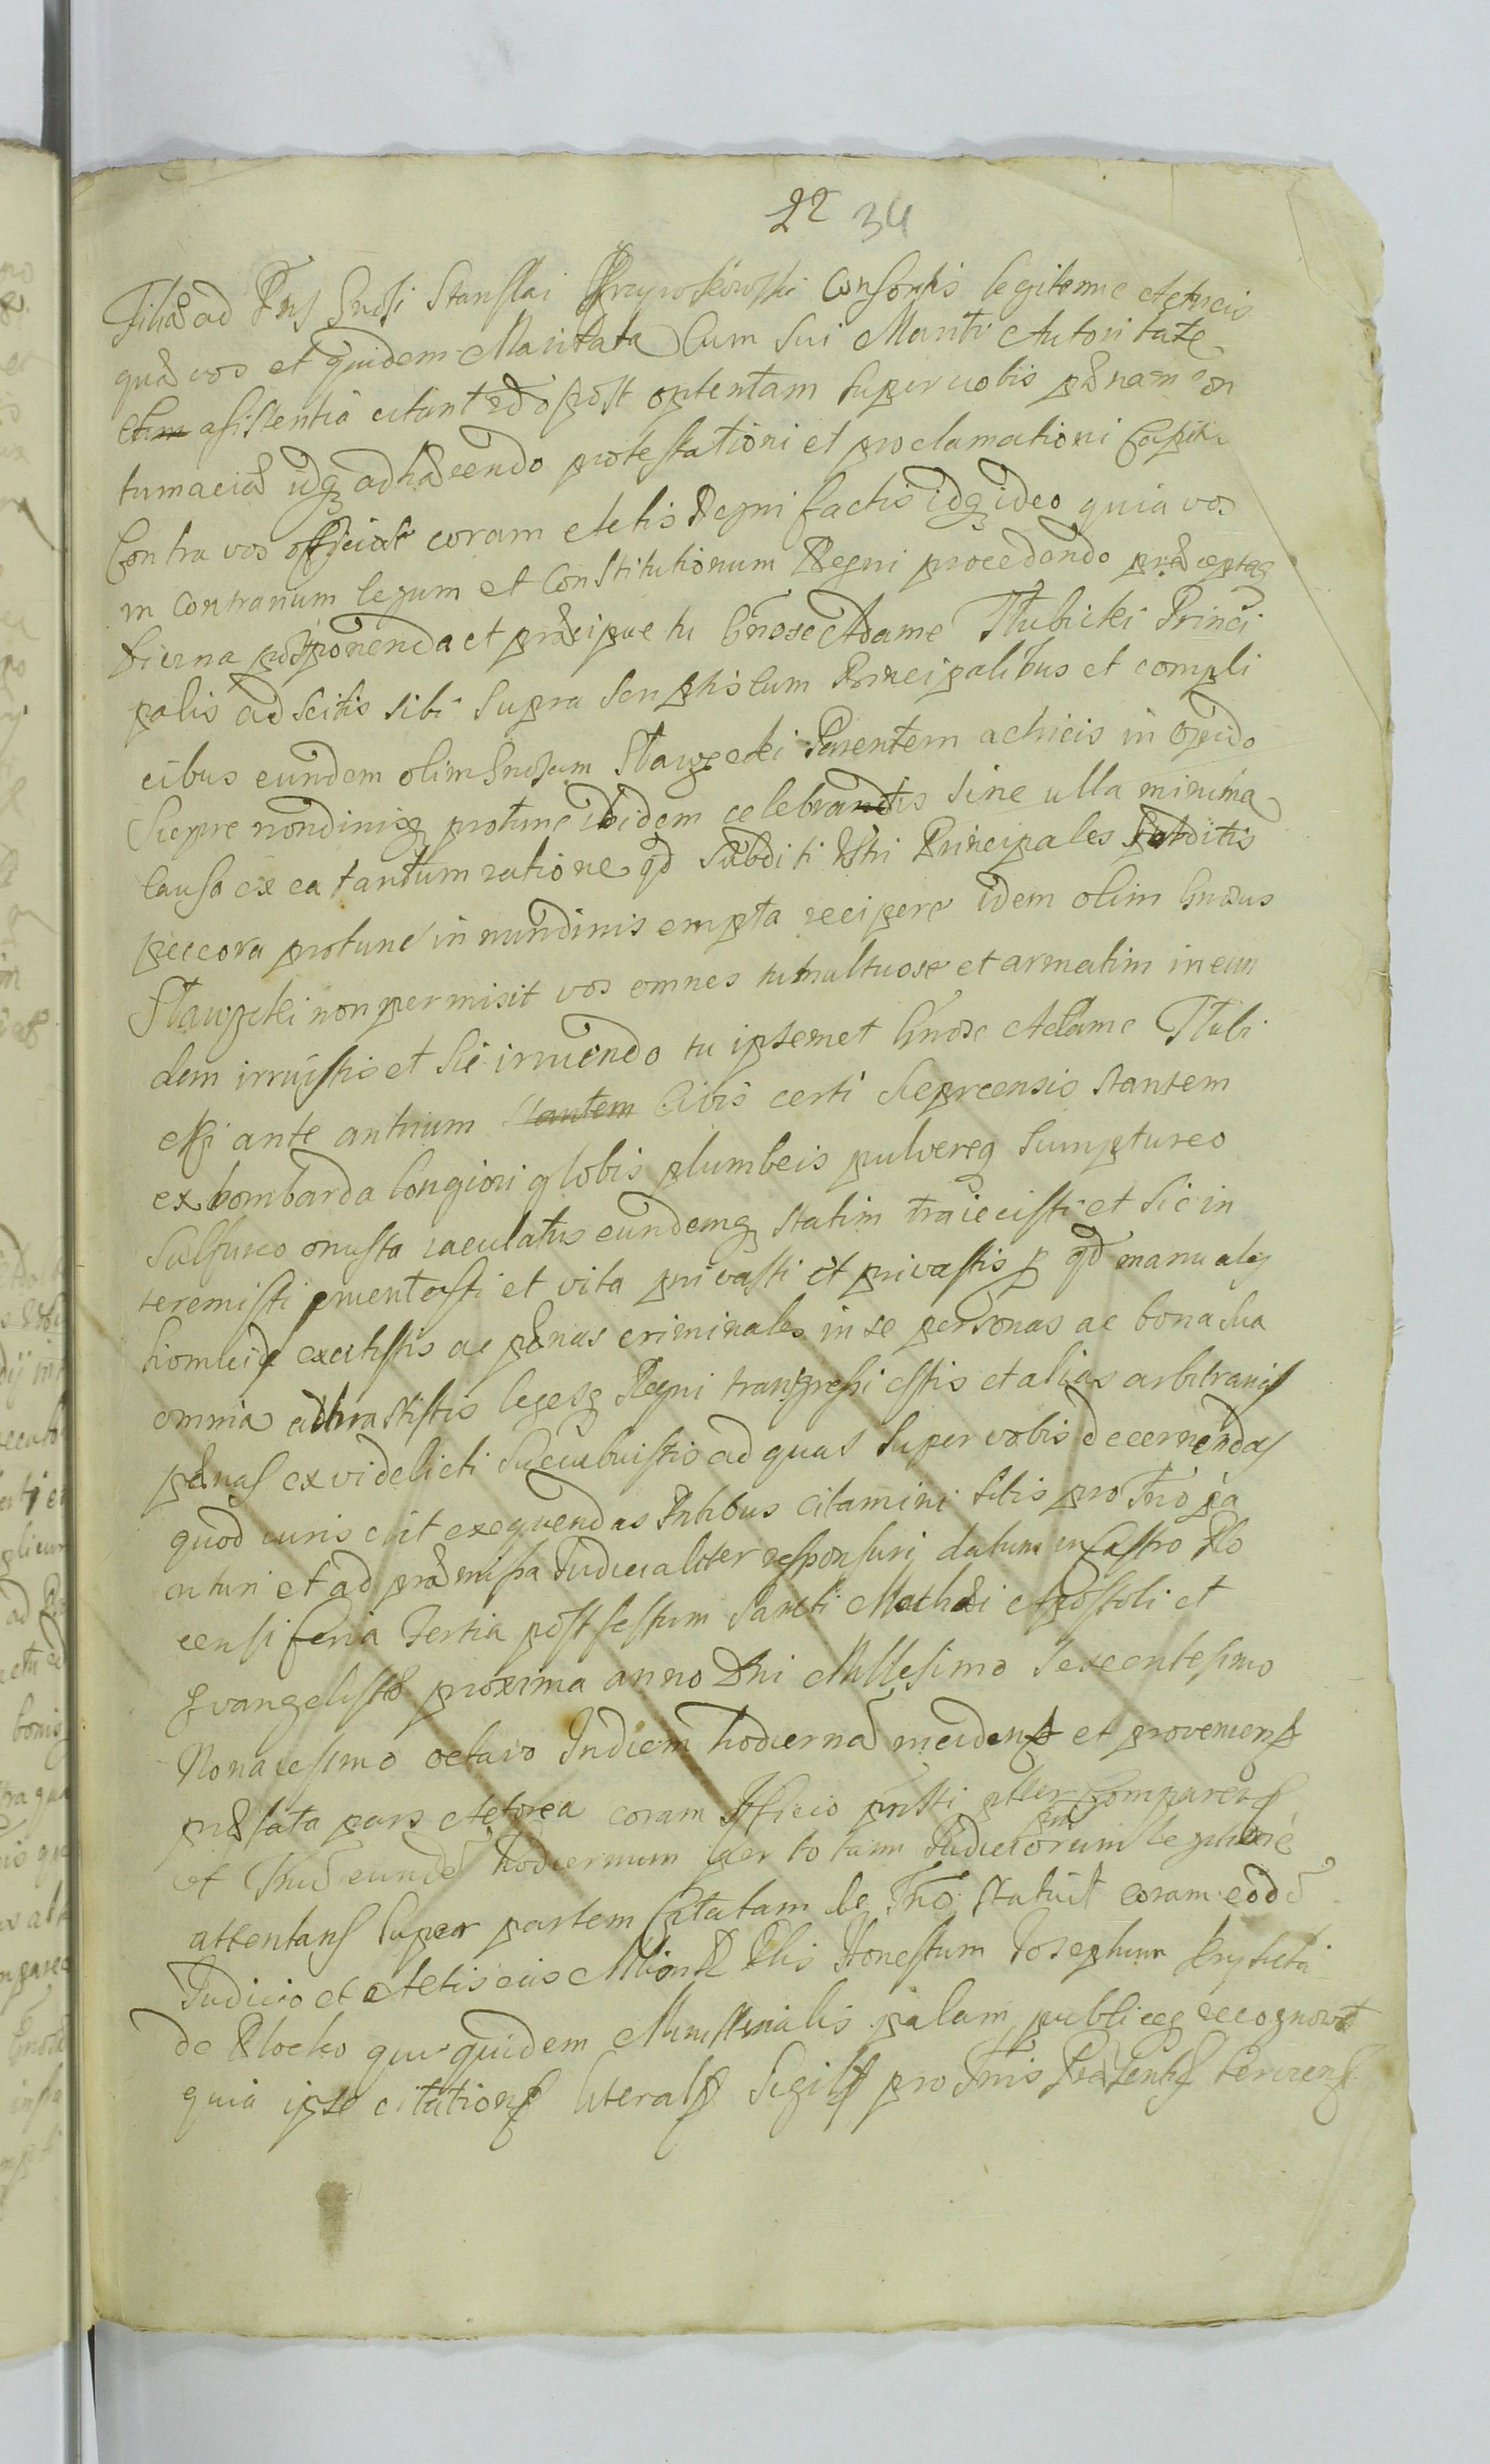 22 34
Filiæ ad Pns Gnosi Stanislai Przywskowski Consortis legitimæ Actricis
quæ vos et quidem Maritata Cum Sui Mariti Autoritate
etum asistentiâ citant post optentam super vobis pænam con
tumaciæ idq adhærendo protestationi et proclamationi
Contra vos officiose coram Actis Regni factis idq ideo quia vos
in contrarium legum et Constitutionum Regni procedendo præceptaq
postponenda et præcipue tu Gnose Adame Tłubicki Princi
palis adscitis sibi supra scriptis cum Principalibus et compli
cibus eundem olim Gnosum Sławęcki Parentem actricis in Opido
Siepre nondinisq protunc ibidem celebrandis sine ulla minima
Causa ex ea tantum ratione qd Subditi Vstri Principales Subditis
peccora protunc in nundinis empta recipere idem olim Gnosus
Sławęcki non permisit vos omnes tumultuose et armatim in eun
dem irruistis et Sic irruendo tu ipsemet Gnose Adame Tłubi
cki ante antrium stantem Civis certi Siepreensis stantem
ex bombarda longiori globis plumbeis pulvereq sumptureo
Sulfureo onusta iaculatus eundemq statim traiecisti et Sic in
teremisti cruentasti et vita privasti et privastis p qd manuale
homicid exercuistis ac pænas criminales in se personas ac bona sua
omnia attraxistis legesq Regni transgressi estis et alias arbitrarias
pænas ex vi delicti Sucubuistis ad quas super vobis decernendas
quod iuris erit exequendas Pntibus citamini sitis pro Tno pa
rituri et ad præmissa Judicialiter responsuri datum in Castro Plo
censi feria Tertia post festum Sancti Mathæi Apostoli et
Evangelistæ proxima anno Dni Millesimo Sexcentesimo
Nonagesimo octavo In diem hodiernæ incidens et proveniens
præfata pars Actorea coram Officio pnsti pltter Comparens
et Tnu eunde hodiernum per totum Judiciorum legitime
attentans super partem Citatam le Tno Statuit coram eode
Judicio et Actis eius Mlem Rlis Honestum Josephum
de Plocko qui quidem Ministerialis palam publiceq recognovit
quia ipse citations literals Sigils pro Tnis Præsentis Serviens